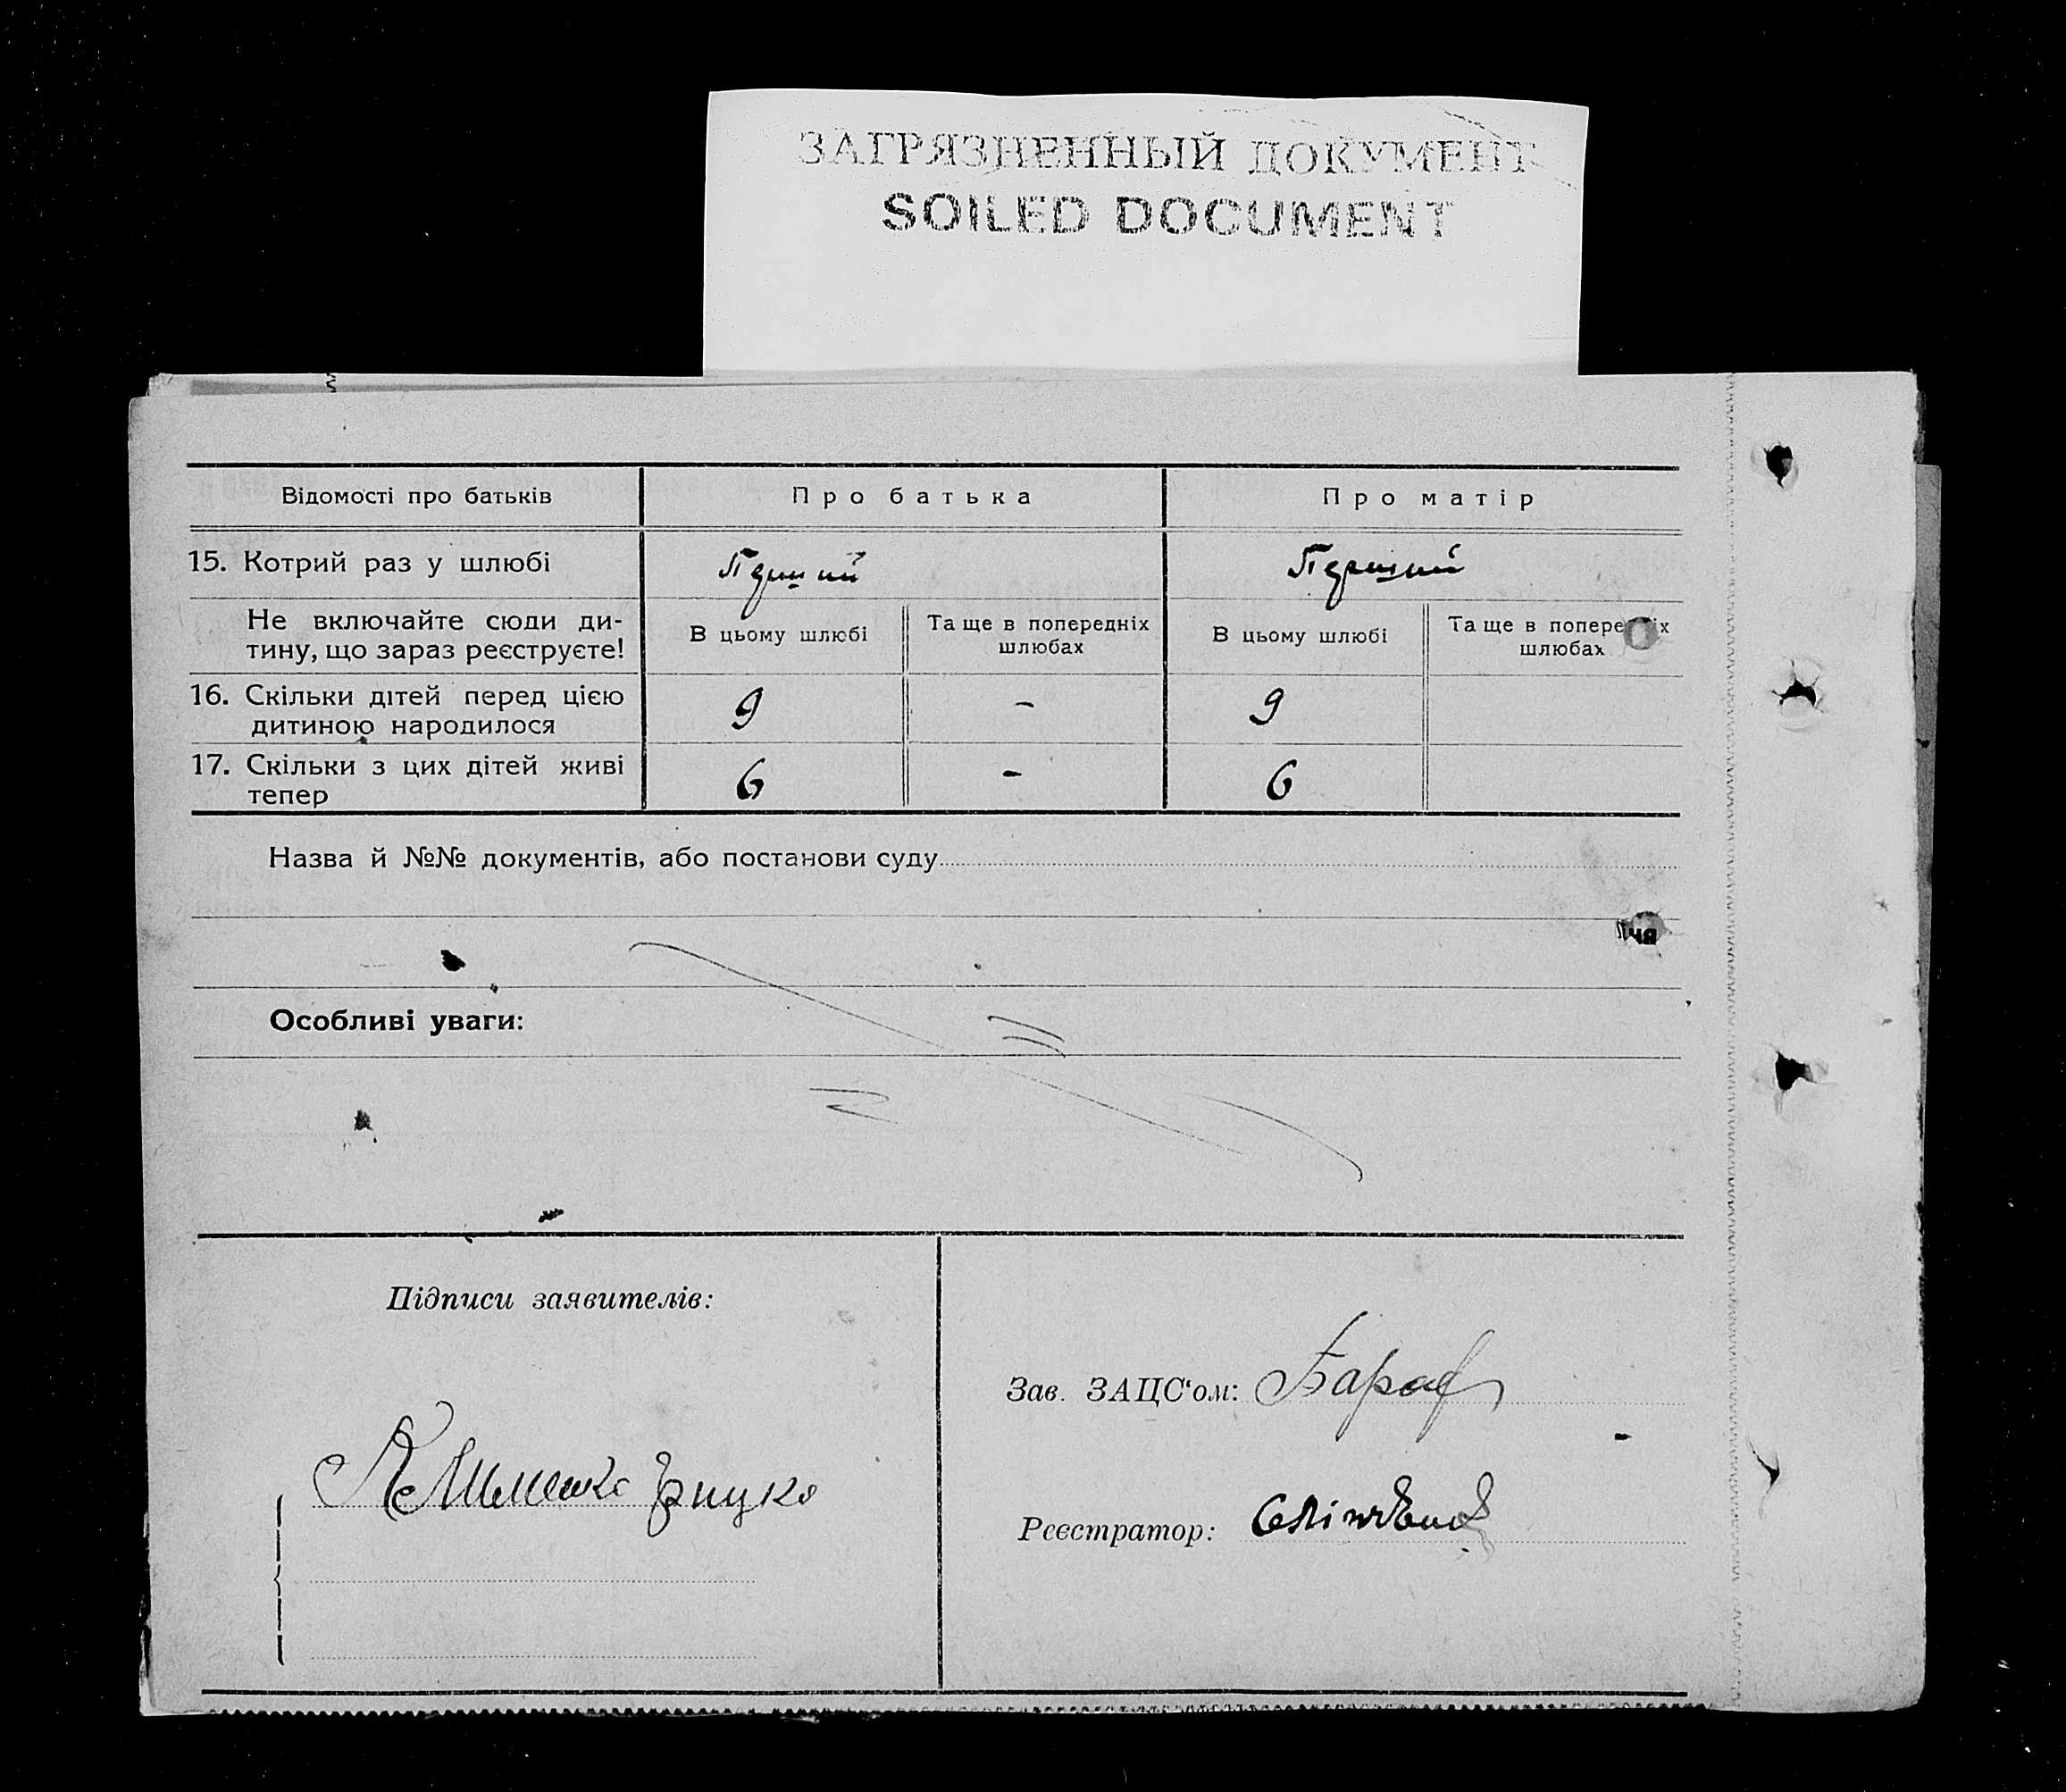 ЗАГРЯЗНЕННЫЙ ДОКУМЕНТ
SOILED DOCUMENT
Відомості про батьків Про батька Про матір
15. Котрий раз у шлюбі Перший Перший
Не включайте сюди ди-
тину, що зараз реєструєте!
В цьому шлюбі Та ще в попередніх шлюбах В цьому шлюбі Та ще в попередніх шлюбах
16. Скільки дітей перед цією
дитиною народилося 9 - 9
17. Скільки з цих дітей живі
тепер 6 - 6
Назва й №№ документів, або постанови суду
Особливі уваги:
Підписи заявителів:
Зав. ЗАЦС‘ом:
Реєстратор: